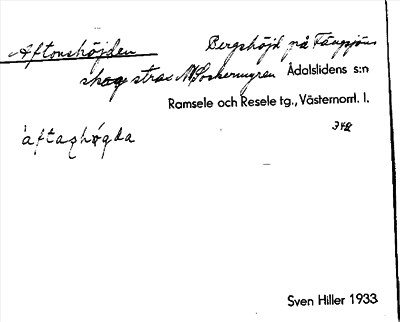 Aftonshöjden Bergshöjd på Tängsjöns
skog strax N Ådalslidens s:n
Ramsele och Resele tg., Västernorrl. l.
348
àftaʂhø̀gda
Sven Hiller 1933